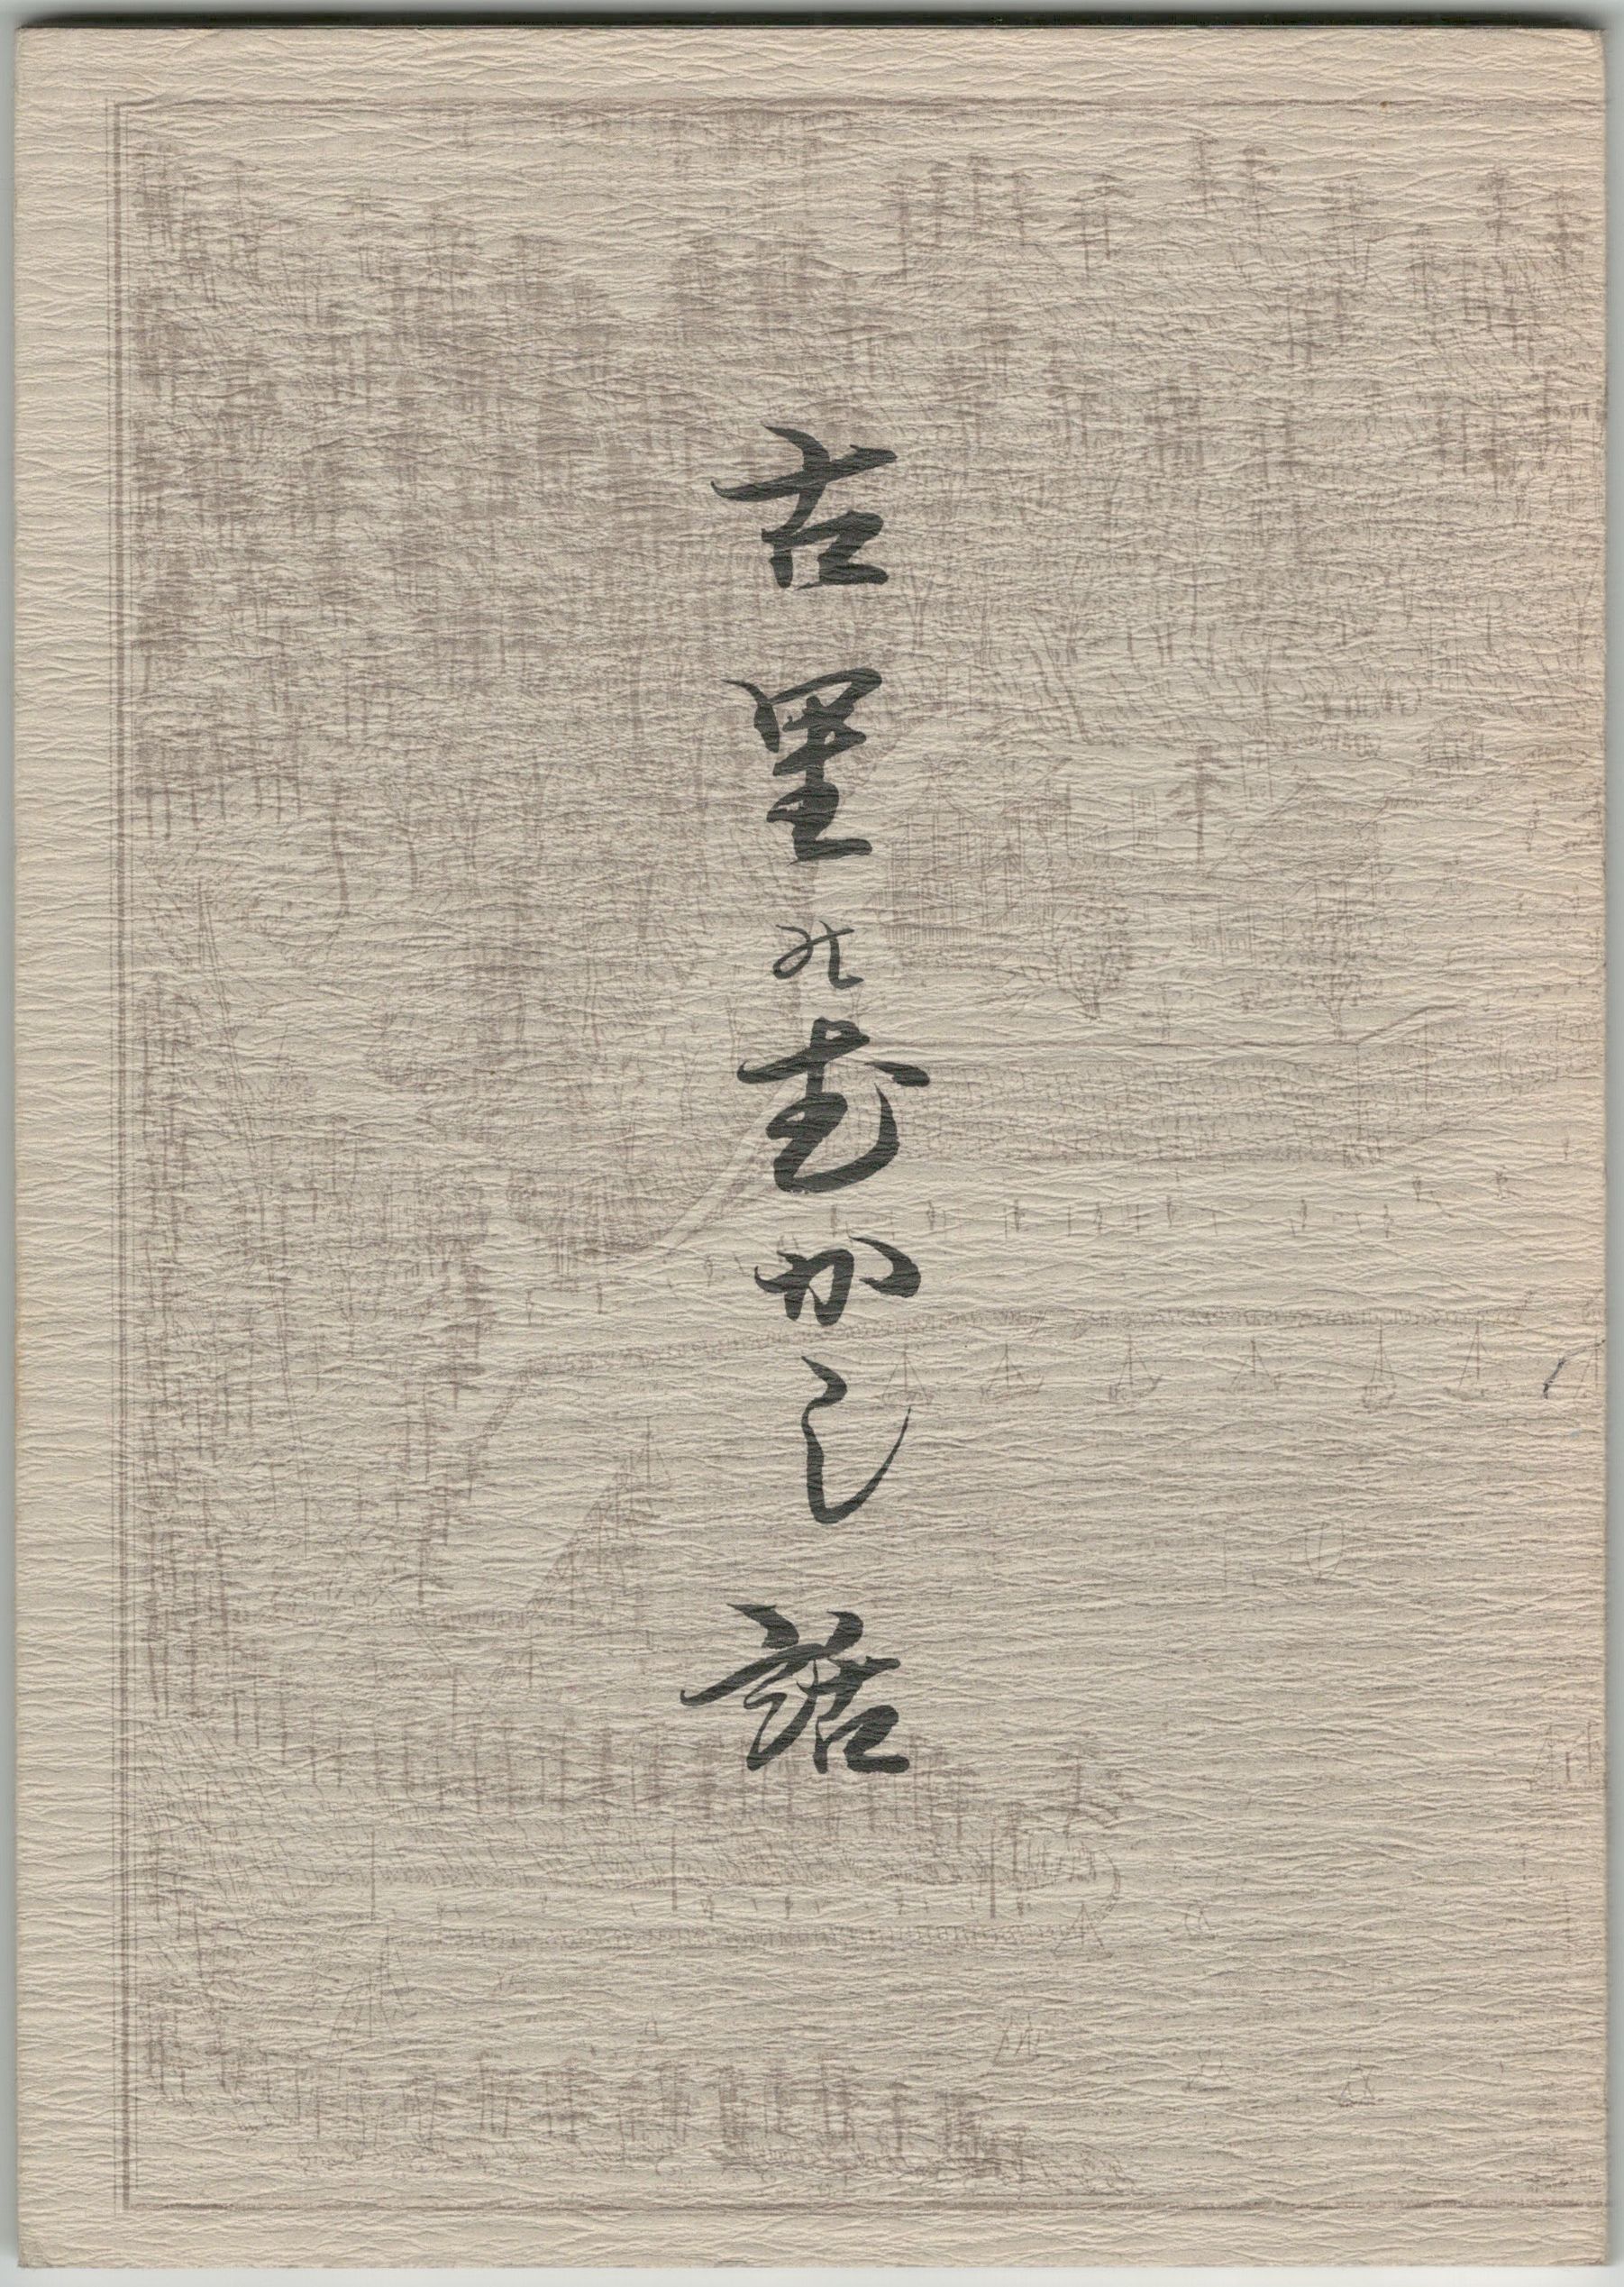 古里のむかし話